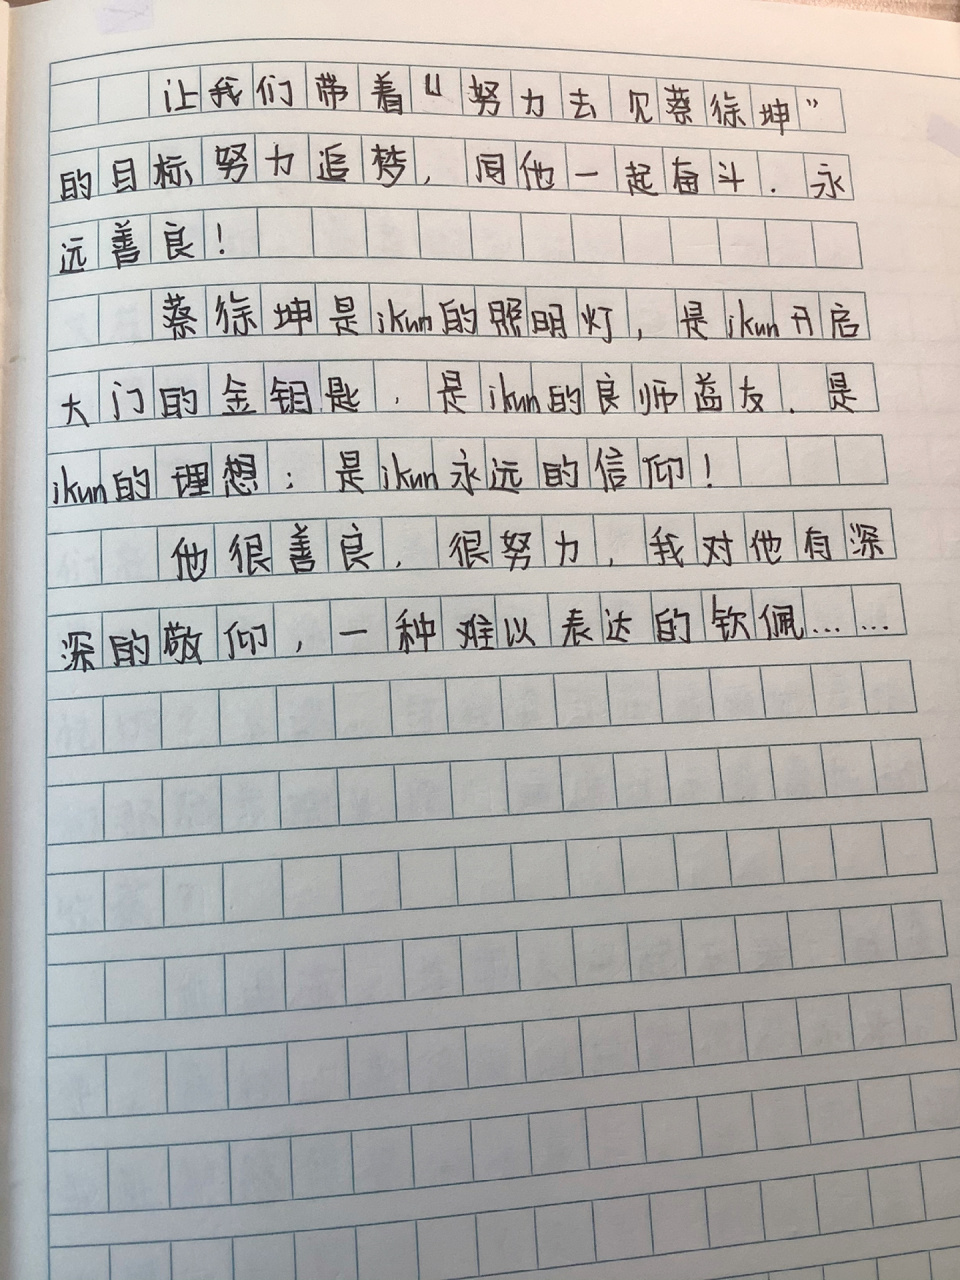 让我们带着“努力去见蔡徐坤”
的目标努力追梦,同他一起奋斗.永
远善良!
蔡徐坤是ikun的照明灯,是ikun开启
大门的金钥匙,是ikun的良师益友.是
ikun的理想;是ikun永远的信仰!
他很善良,很努力,我对他有深
深的敬仰,一种难以表达的钦佩……